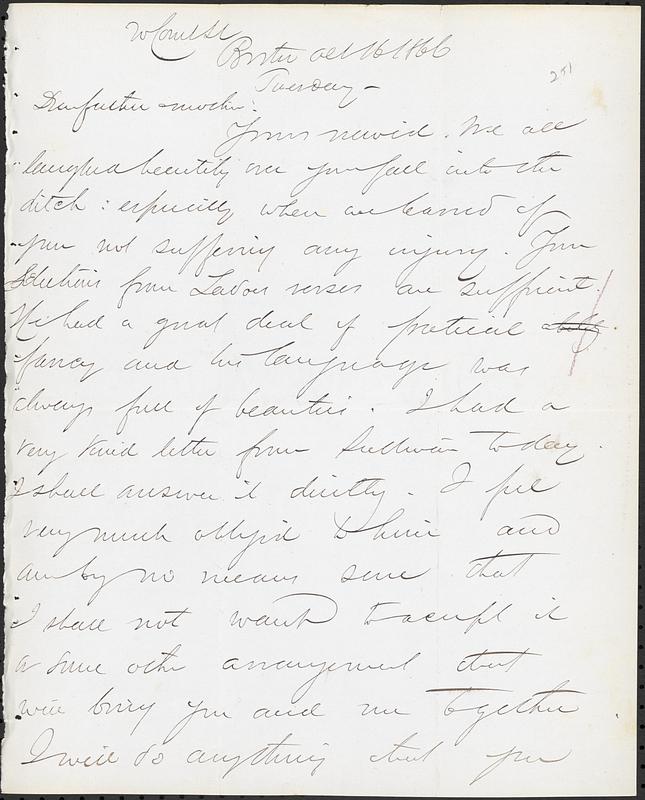 W Court St
Boston Oct 16 1866
Tuesday -
251
Dear father & mother:
Yours received. We all
laughed heartily over your fall into the
ditch: especially when we learned of
your not suffering any injury. Your
Selections from verses are sufficient.
He had a great deal of poetical
fancy and his language was
always full of beauties. I had a
very kind letter from Sullivan today.
I shall answer it directly. I feel
very much obliged to him and
am by no means sure that
I shall not want to accept it
or some other arrangement that
will bring you and me together
I will do anything that you